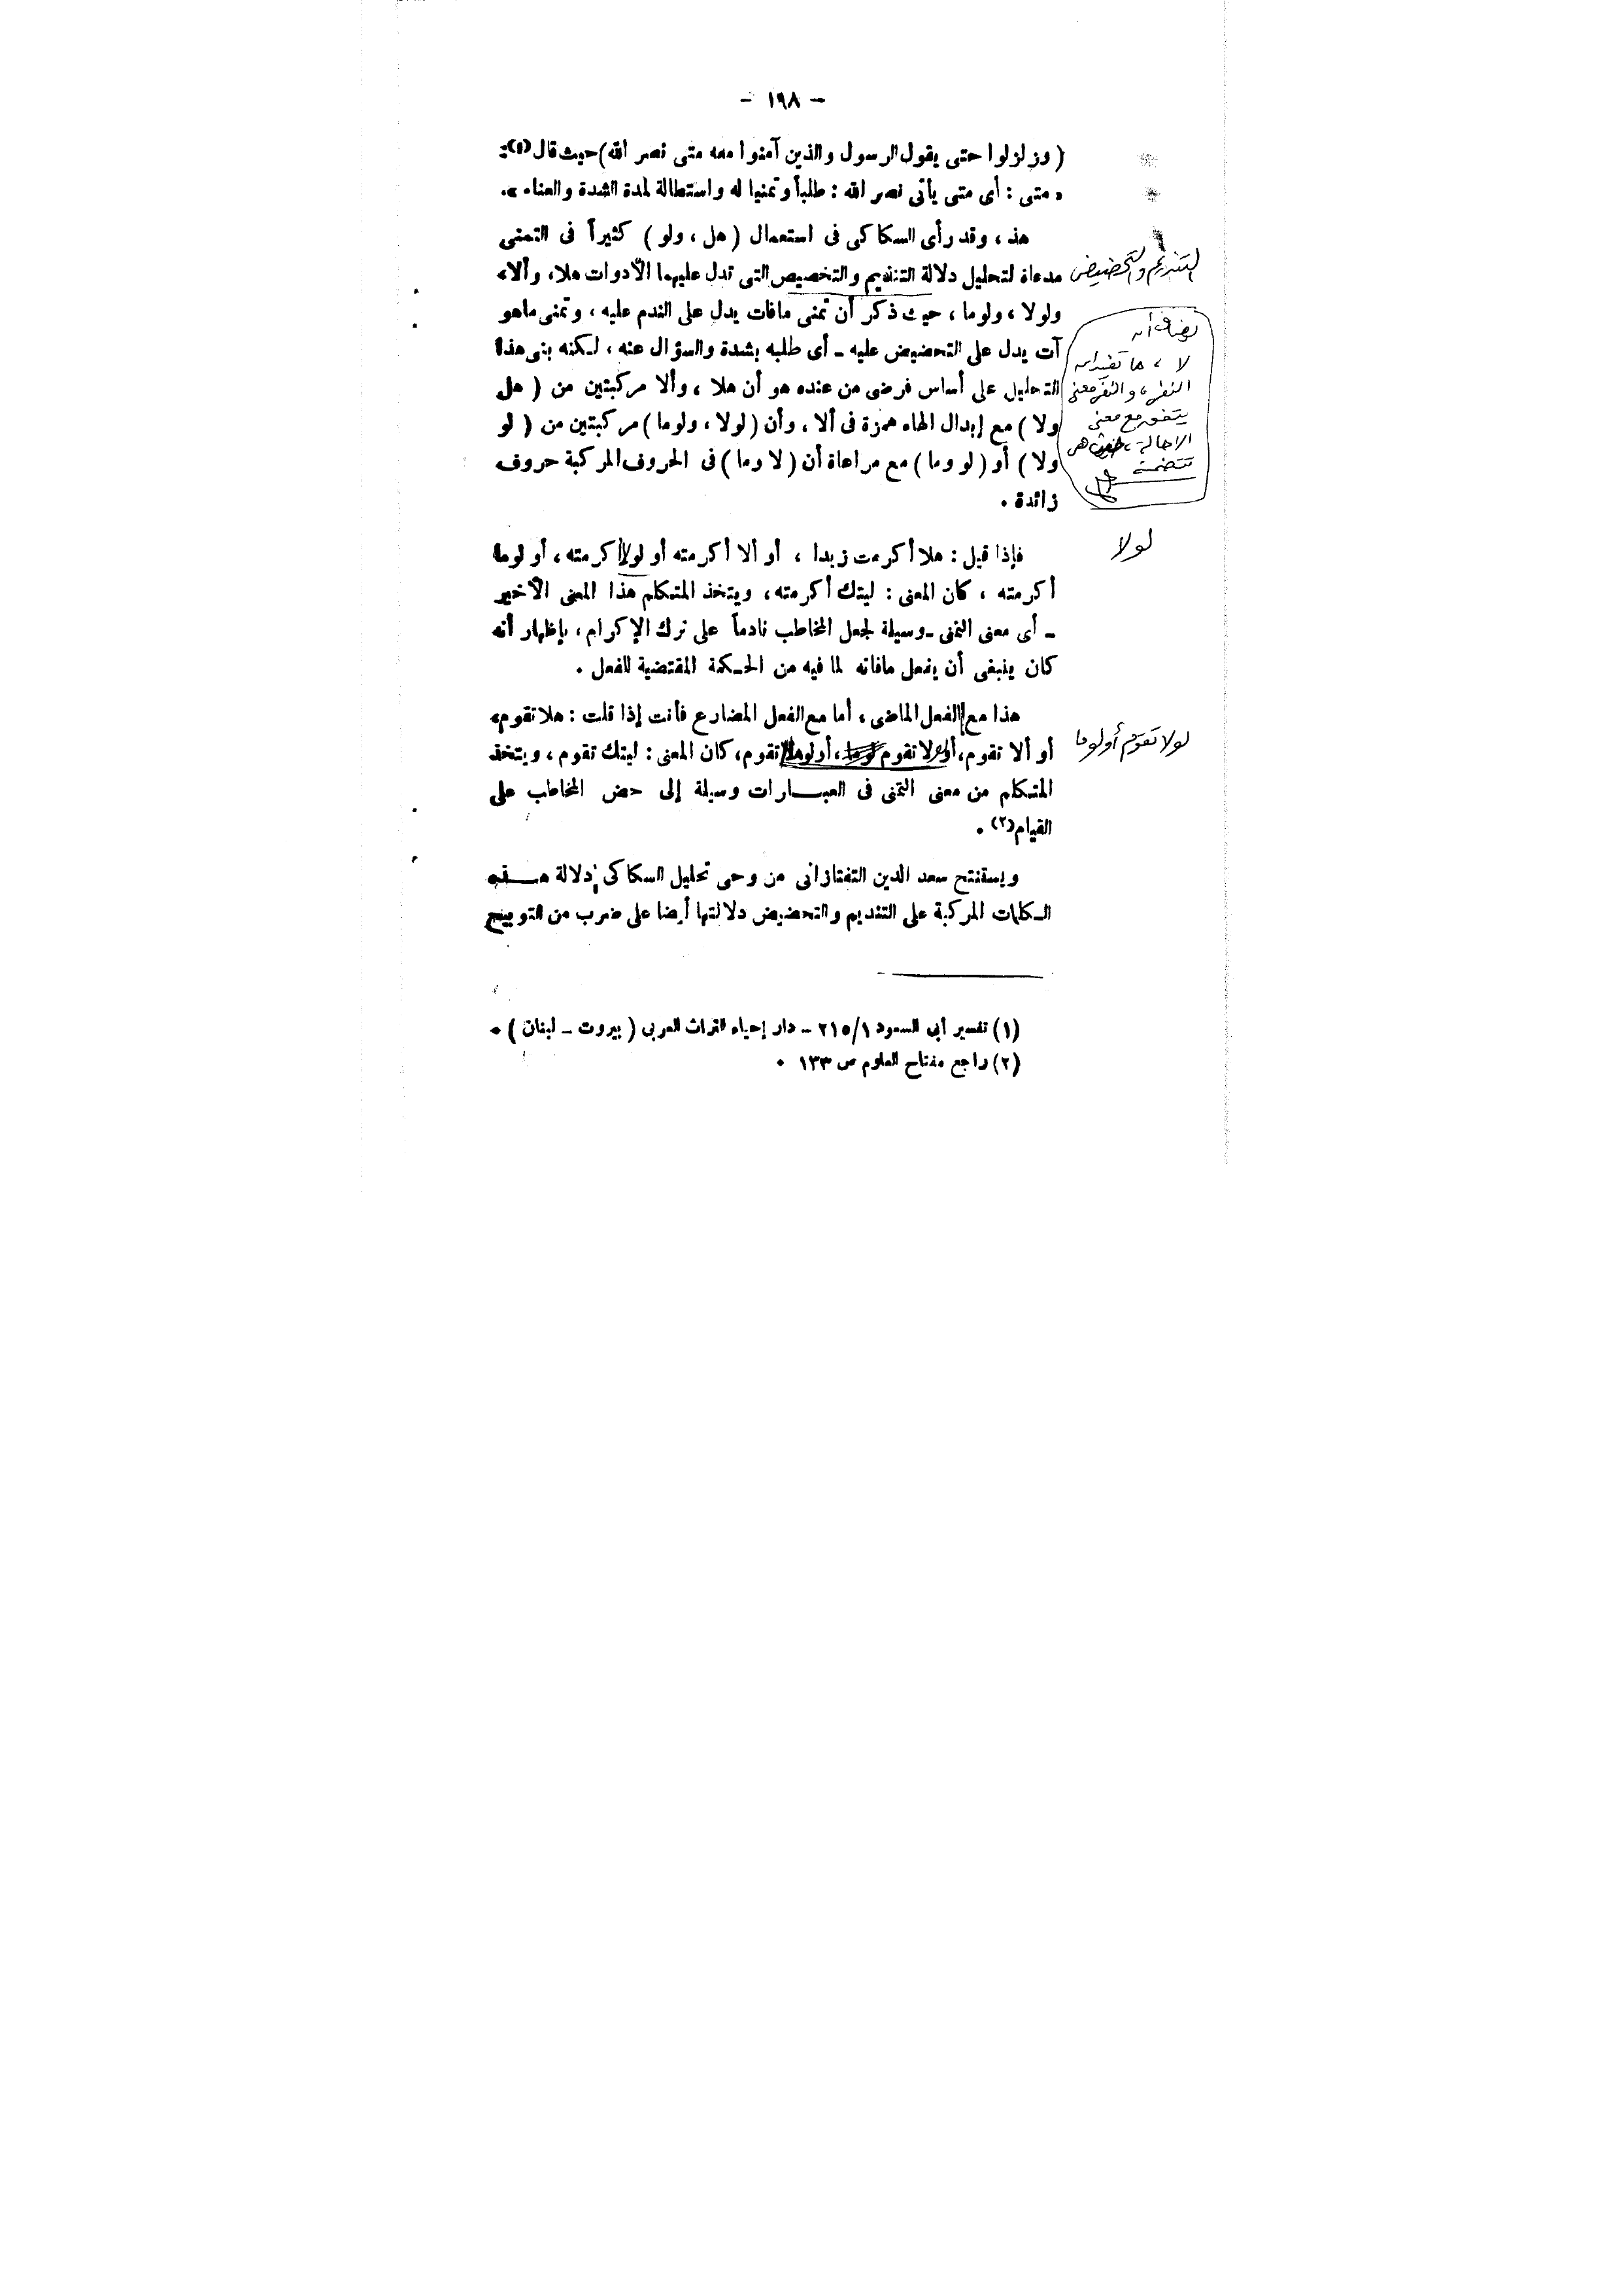 - ١٩٨ -
( وزلزلوا حتى يقول الرسول والذين آمنوا معه متى نصر الله ) حيث قال (١) :
« متى : أى متى يأتى نصر الله : طلباً وتمنيا له واستطالة لمدة الشدة والعناء » .
هذ ، وقد رأى السكاكى فى استعمال ( هل ، ولو ) كثيراً فى التمنى
مدعاة لتحليل دلالة التنديم والتخصيص التى تدل عليهما الأدوات هلا ، وألا ،
التنديم والتحضيض
ولولا ، ولوما ، حيث ذكر أن تمنى مافات يدل على الندم عليه ، وتمنى ماهو
آت يدل على التحضيض عليه ـ أى طلبه بشدة والسؤال عنه ، لكنه بنى هذا
التحليل على أساس فرضى من عنده هو أن هلا ، وألا مركبتين من ( هل
ولا ) مع إبدال الهاء همزة فى ألا ، وأن ( لولا ، ولوما ) مركبتين من ( لو
ولا ) أو ( لو وما ) مع مراعاة أن ( لا وما ) فى الحروف المركبة حروف
زائدة .
يضاف أن
لا ، ما تفيدان
النفى ، والنفى معنى
يتفق مع معنى
الاحالة ، هى
تتضمنه
فإذا قيل : هلا أكرمت زيدا ، أو ألا أكرمته أو لولا أكرمته ، أو لوما
لولا
أكرمته ، كان المعنى : ليتك أكرمته ، ويتخذ المتكلم هذا المعنى الأخير
ـ أى معنى التمنى ـ وسيلة لجعل المخاطب نادماً على ترك الإكرام ، بإظهار أنه
كان ينبغى أن يفعل مافاته لما فيه من الحكمة المقتضية للفعل .
هذا مع الفعل الماضى ، أما مع الفعل المضارع فأنت إذا قلت : هلا تقوم ،
أو ألا تقوم ، أو لولا تقوم لوما ، أو لوما تقوم ، كان المعنى : ليتك تقوم ، ويتخذ
لولا تقوم أو لوما
المتكلم من معنى التمنى فى العبارات وسيلة إلى حض المخاطب على
القيام (٢) .
ويستنتج سعد الدين التفتازانى من وحى تحليل السكاكى دلالة هذه
الكلمات المركبة على التنديم والتحضيض دلالتها أيضا على ضرب من التوبيخ
(١) تفسير أبى السعود ٢١٥/١ ـ دار إحياء التراث العربى ( بيروت ـ لبنان ) .
(٢) راجع مفتاح العلوم ص ١٣٣ .